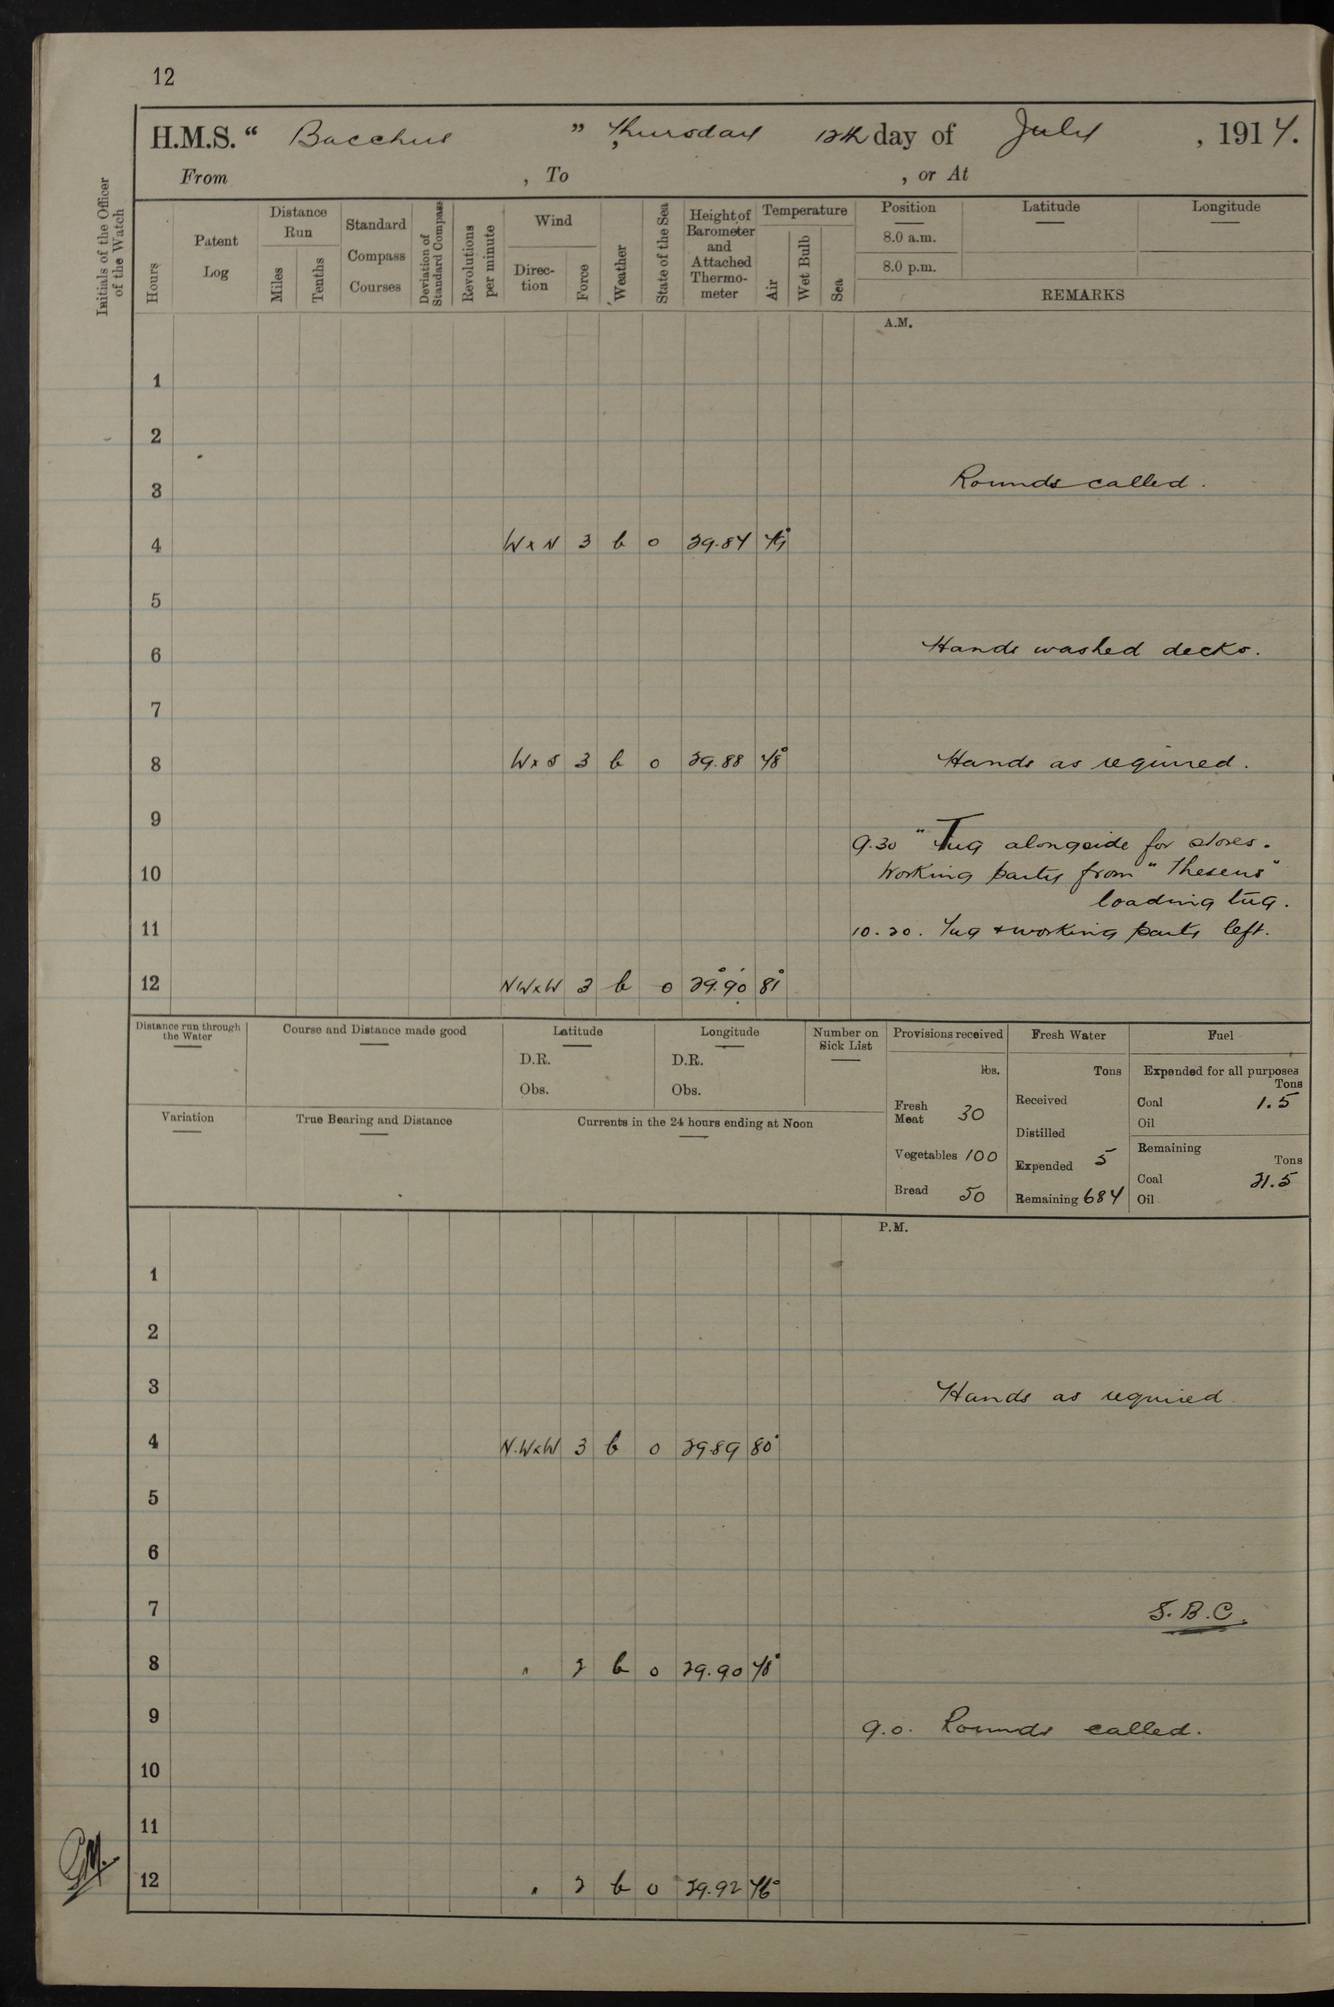 12
H.M.S. " Bacchus ", Thursday 12th day of July, 1917.
From , To , or At
Initials of the Officer of the Watch
Hours
Patent Log
Distance Run
Miles
Tenths
Standard Compass Courses
Deviation of Standard Compass
Revolutions per minute
Wind
Direction
Force
Weather
State of the Sea
Height of Barometer and Attached Thermometer
Temperature
Air
Wet Bulb
Sea
Position Latitude Longitude
8.0 a.m.
8.0 p.m.
REMARKS
A.M.
1
2
3 Rounds called.
4 W x N 3 b 0 29.87 79°
5
6 Hands washed decks.
7
8 W x S 3 b 0 29.88 78° Hands as required.
9
9.30 " Tug alongside for stores.
10 Working party from "Theseus"
loading tug.
11 10.20. Tug & working party left.
12 NW x W 3 b 0 29.90 81°
Distance run through the Water
Course and Distance made good
Latitude
D.R.
Obs.
Longitude
D.R.
Obs.
Number on Sick List
Variation
True Bearing and Distance
Currents in the 24 hours ending at Noon
Provisions received
lbs.
Fresh Meat 30
Vegetables 100
Bread 50
Fresh Water
Tons
Received
Distilled
Expended 5
Remaining 687
Fuel
Expended for all purposes
Tons
Coal 1.5
Oil
Remaining
Tons
Coal 21.5
Oil
P.M.
1
2
3 Hands as required
4 N.W x W 3 b 0 29.89 80°
5
6
7 S.B.C.
8 " 2 b 0 29.90 78°
9 9.0. Rounds called.
10
11
12 " 2 b 0 29.92 76°